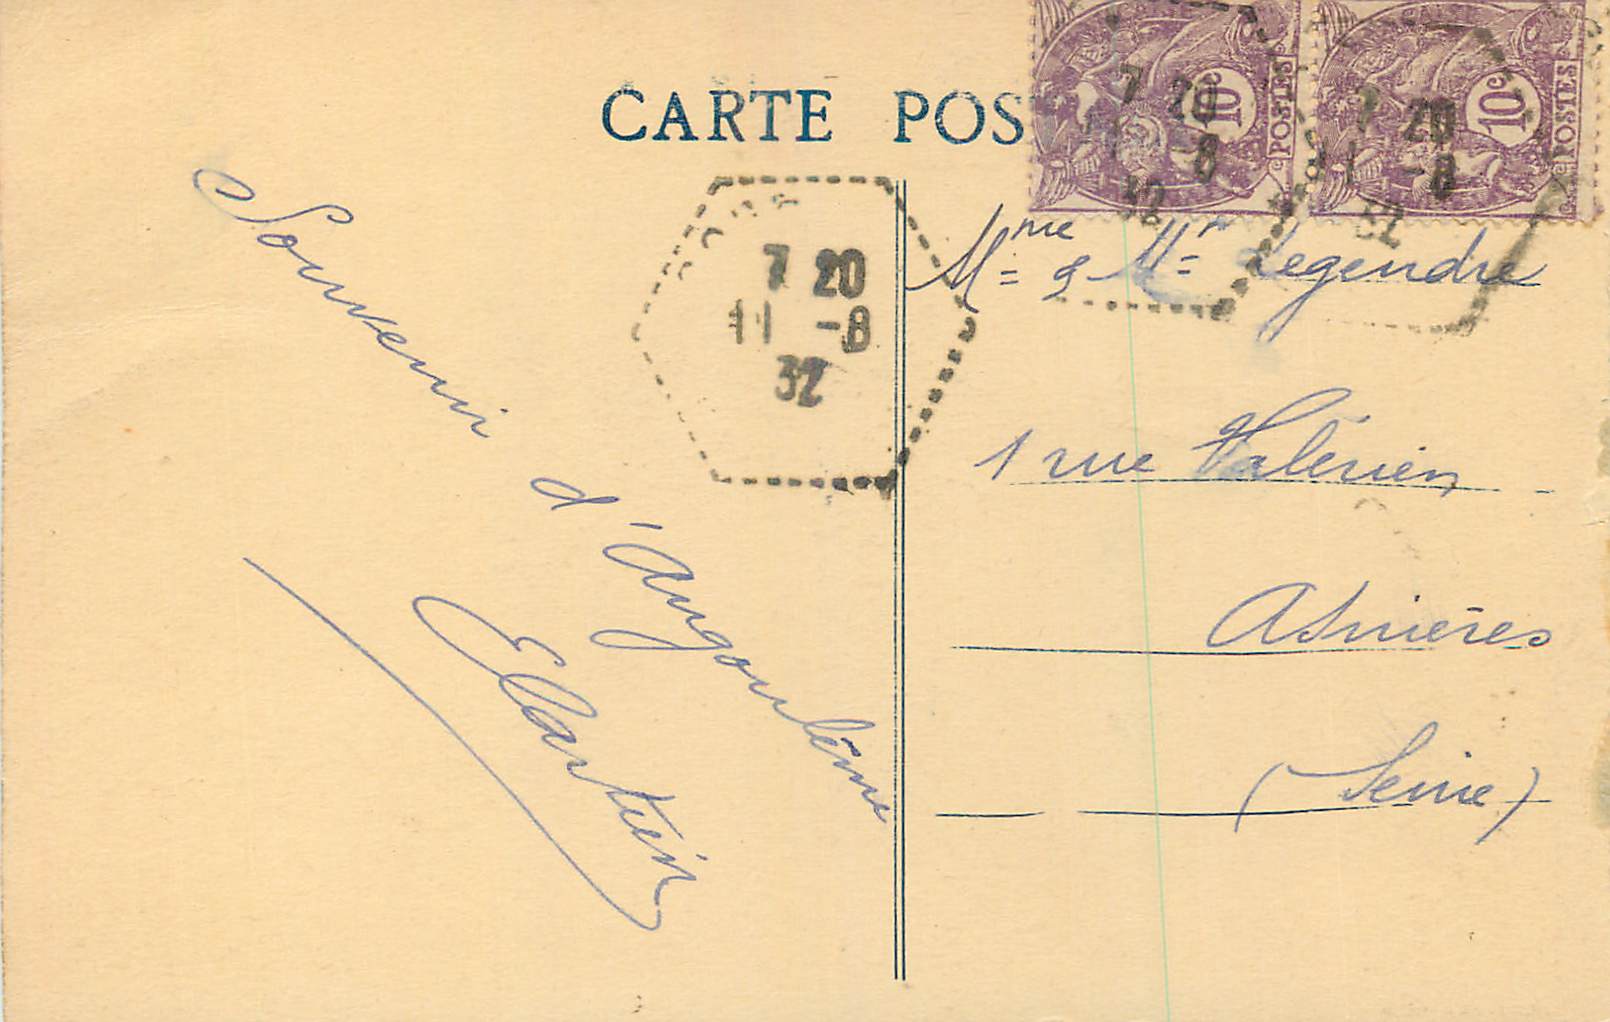 CARTE POS
10c
POSTES
10c
POSTES
7 20
11 -8
32
7 20
11 -8
32
7 20
-8
32
Souvenir d'Angoulême
Mme & Mr Legendre
1 rue Valérien
Asnières
(Seine)